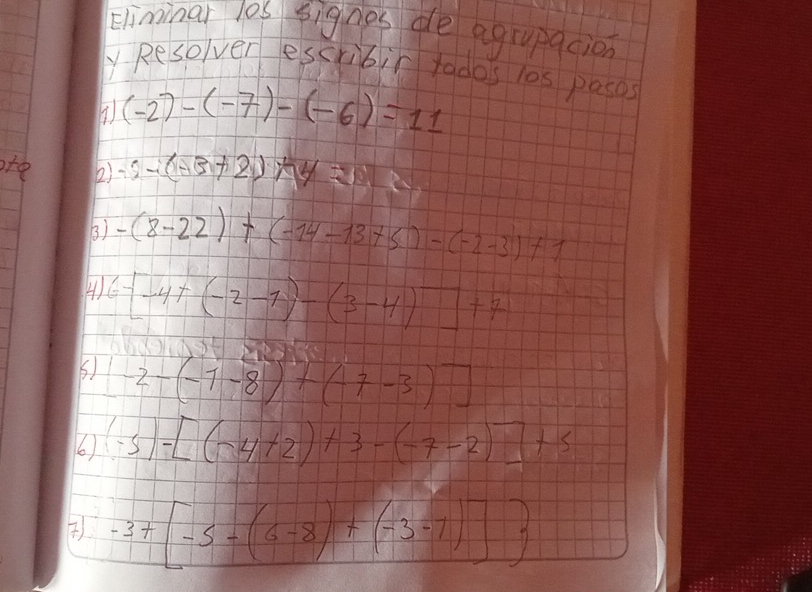 Eliminar los signos de agrupación
y Resolver escribir todos los pasos
1) (-2) - (-7) - (-6) = 11
2) -2 - (-3 + 2) + 4 =
3) -(8 - 22) + (-14 - 13 + 5) - (-2 - 3) + 1
4) 6 - [-4 + (-2 - 1) - (3 - 4)] + 7
5) [-2 - (-1 - 8) + (-7 - 3)]
6) (-5) - [(-4 + 2) + 3 - (-7 - 2)] + 5
7) -3 + [-5 - (6 - 8) + (-3 - 1)] }